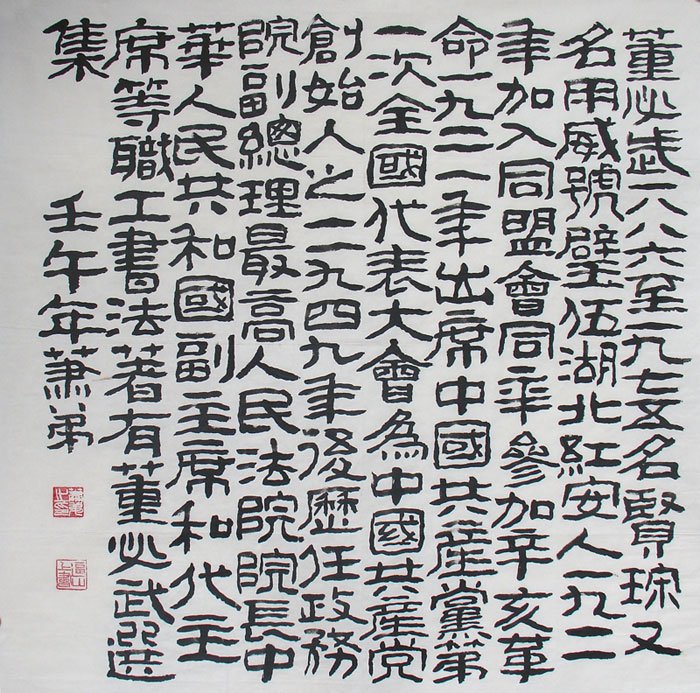 董必武一八八六至一九七五名賢琮又
名用威號璧伍湖北紅安人一九一一
年加入同盟會同年參加辛亥革
命一九二一年出席中國共產黨第
一次全國代表大會為中國共產党
創始人之一一九四九年後歷任政務
院副總理最高人民法院院長中
華人民共和國副主席和代主
席等職工書法著有董必武選
集
壬午年蕭弟